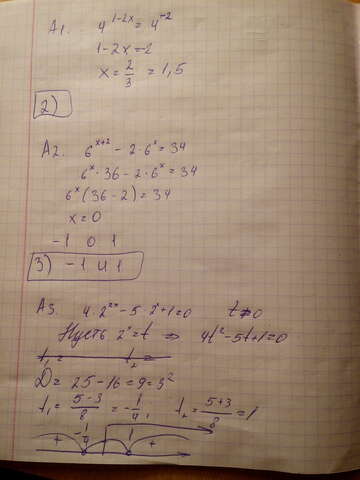 A1. 4^{1-2x} = 4^{-2}
1-2x=-2
x = 2/3 = 1,5
2)
A2. 6^{x+2} - 2·6^x = 34
6^x · 36 - 2·6^x = 34
6^x (36 - 2) = 34
x = 0
-1 0 1
3) -1 и 1
A3. 4·2^{2x} - 5·2^x + 1 = 0 t≠0
Пусть 2^x = t ⇒ 4t² - 5t + 1 = 0
t₁ = t₂
D = 25 - 16 = 9 = 3²
t₁ = (5-3)/8 = -1/4, t₂ = (5+3)/8 = 1
+ -1/4 - 1 +